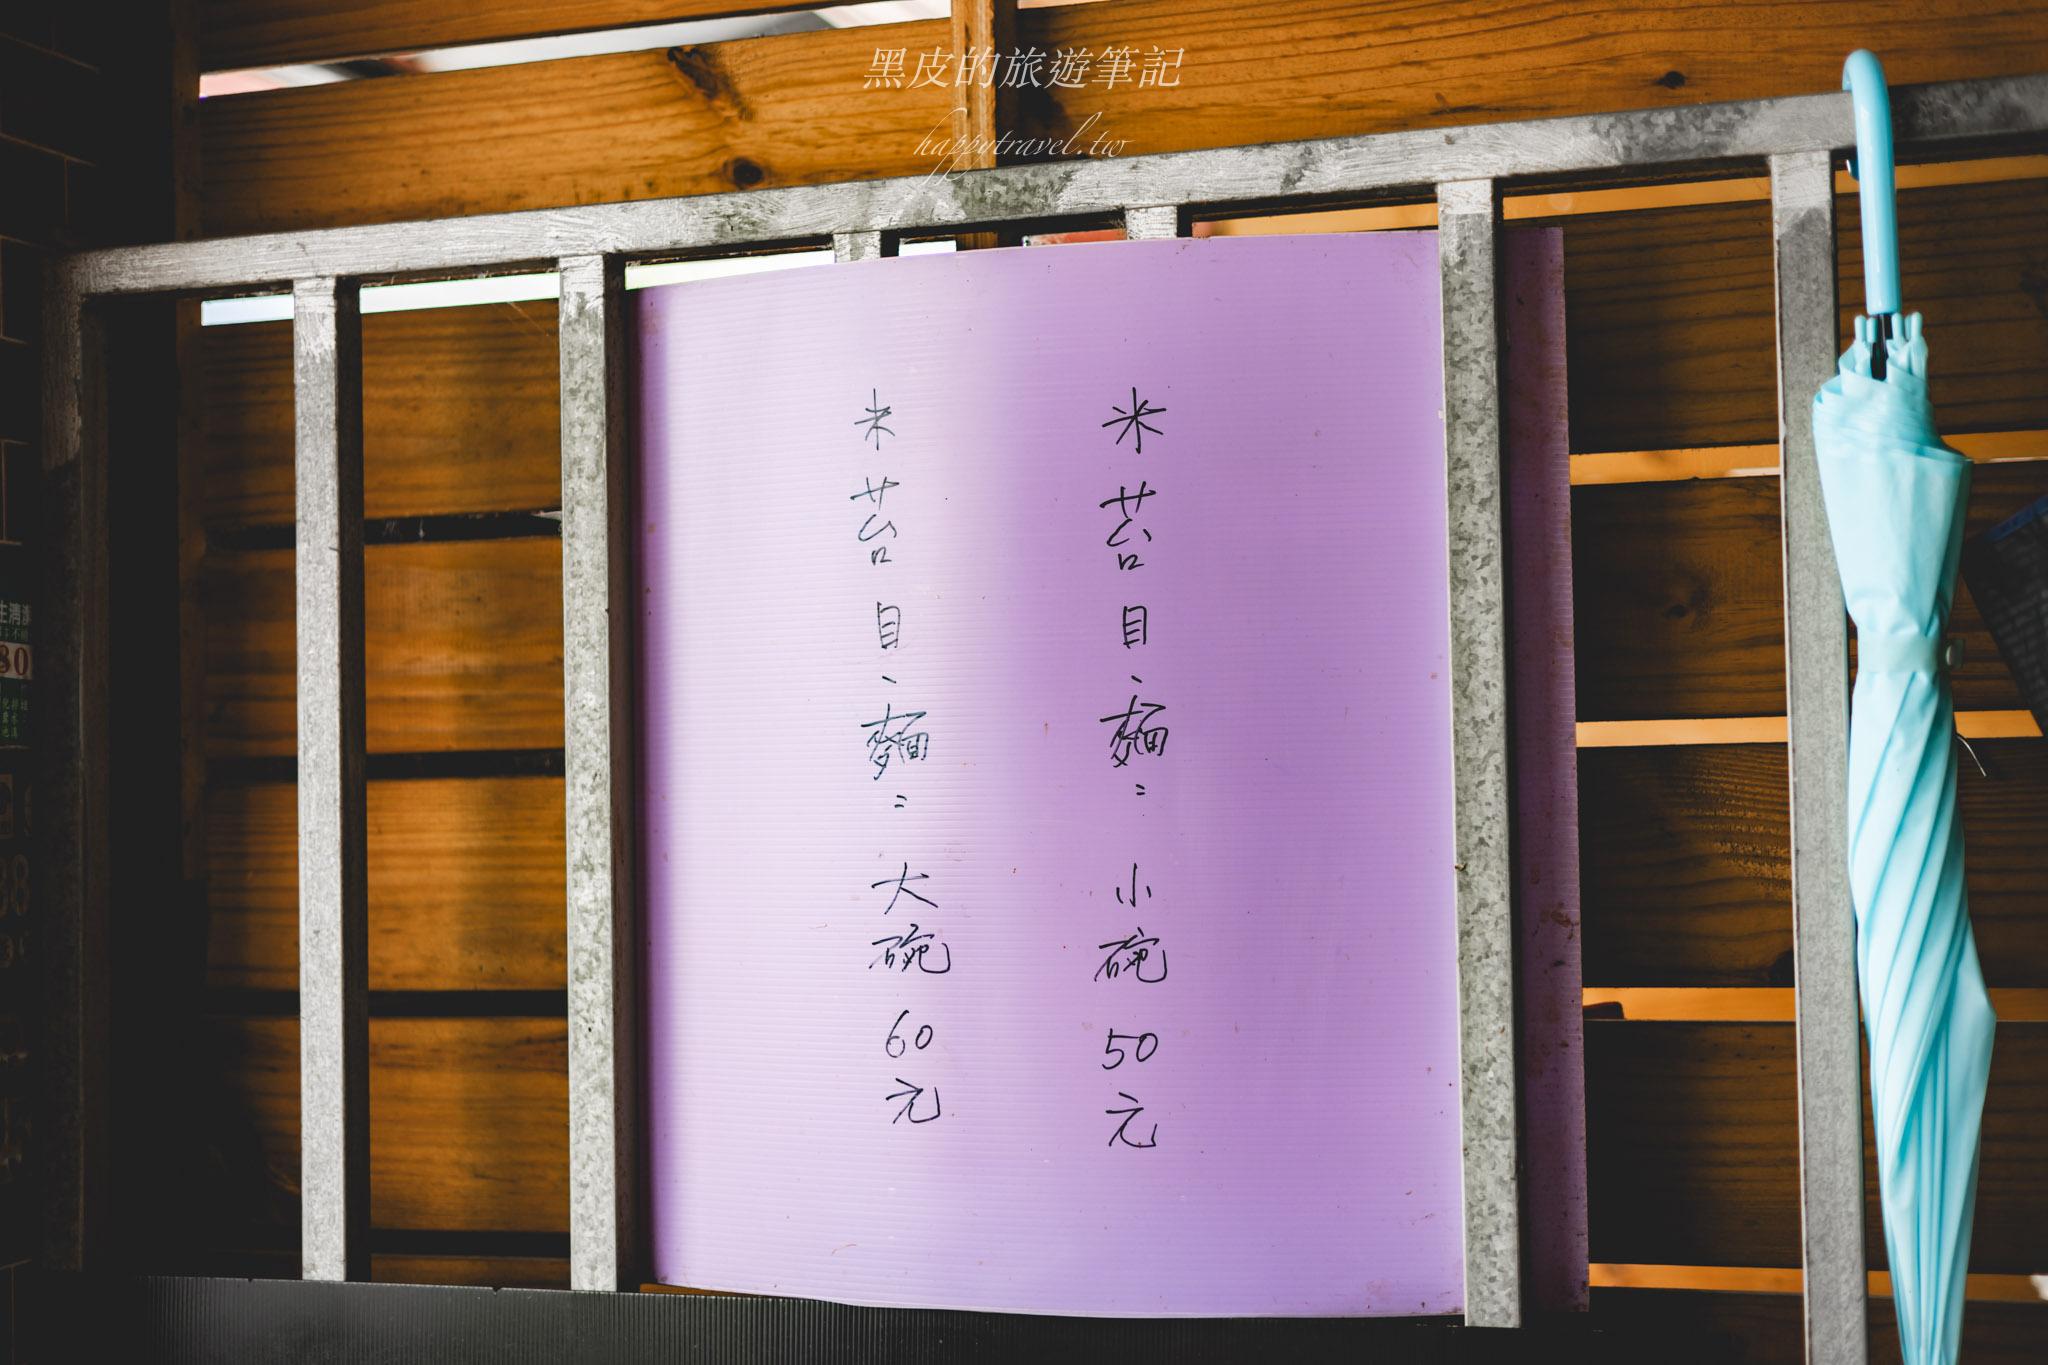 黑皮的旅遊筆記
happytravel.tw
米苔目、麵：小碗50元
米苔目、麵：大碗60元
生清
80